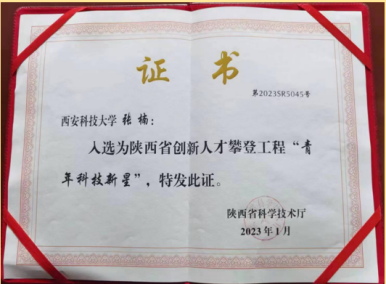 证 书
第2023SR5045号
西安科技大学 张楠:
入选为陕西省创新人才攀登工程“青
年科技新星”,特发此证。
陕西省科学技术厅
2023年1月